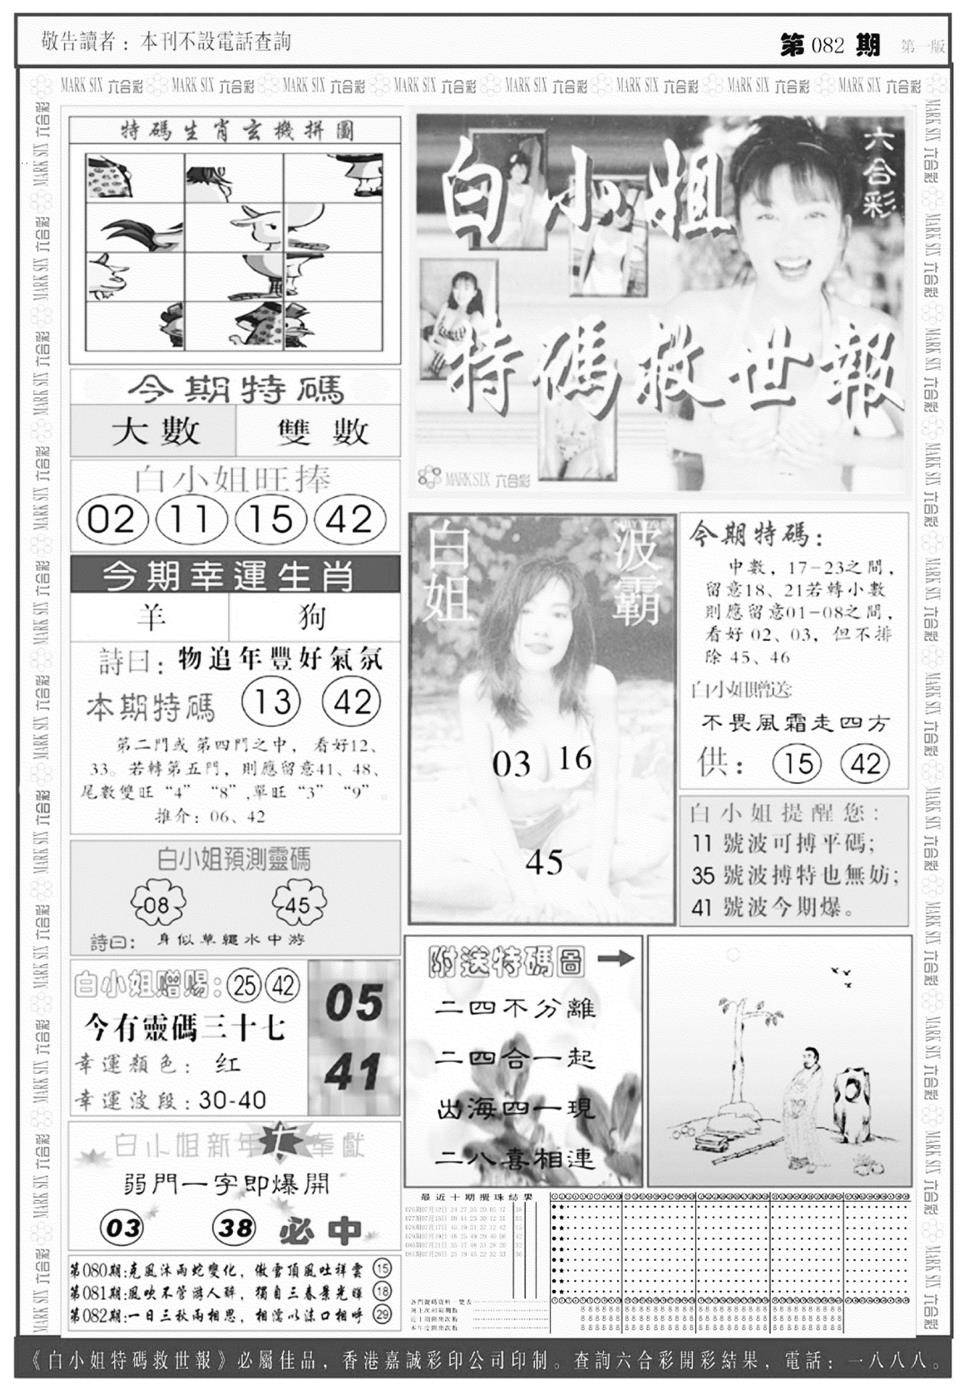 敬告讀者：本刊不設電話查詢
第 082 期 第一版
MARK SIX 六合彩
特碼生肖玄機拼圖
今期特碼
大數 雙數
白小姐旺捧
02 11 15 42
今期幸運生肖
羊 狗
詩曰：物追年豐好氣氛
本期特碼 13 42
第二門或第四門之中，看好12、
33。若轉第五門，則應留意41、48、
尾數雙旺“4”“8”,單旺“3”“9”。
推介：06、42
白小姐預測靈碼
08 45
詩曰：身似草繩水中游
白小姐贈賜：25 42
今有靈碼三十七
幸運顏色：红
幸運波段：30-40
05
41
白小姐新年奉獻
弱門一字即爆開
03 38 必中
第080期:克風沐雨蛇變化，傲雪頂風吐祥雲 15
第081期:風吹不管游人醉，獨自三春景光輝 18
第082期:一日三秋兩相思，相濡以沫口相呼 29
六合彩
白小姐
特碼救世報
MARK SIX 六合彩
白姐 波霸
03 16
45
今期特碼：
中數，17-23之間，
留意18、21若轉小數
則應留意01-08之間，
看好 02、03，但不排
除 45、46
白小姐贈送:
不畏風霜走四方
供：15 42
白小姐提醒您：
11 號波可搏平碼；
35 號波搏特也無妨；
41 號波今期爆。
附送特碼圖
二四不分離
二四合一起
出海四一現
二八喜相連
最近十期攪珠結果
《白小姐特碼救世報》必屬佳品，香港嘉誠彩印公司印制。查詢六合彩開彩結果，電話：一八八八。